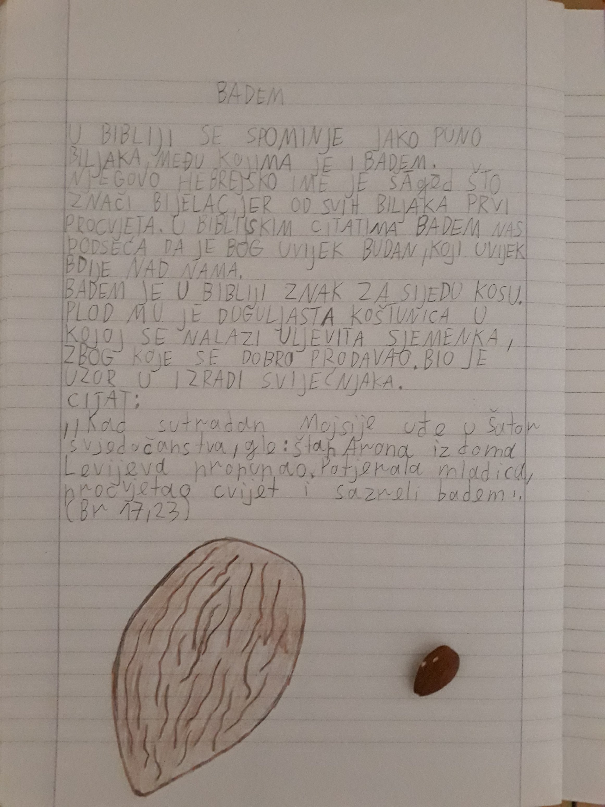 BADEM
U BIBLIJI SE SPOMINJE JAKO PUNO
BILJAKA, MEĐU KOJIMA JE I BADEM.
NJEGOVO HEBREJSKO IME JE ŠAqed ŠTO
ZNAČI BIJELAC, JER OD SVIH BILJAKA PRVI
PROCVJETA. U BIBLISKIM CITATIMA BADEM NAS
PODSEĆA DA JE BOG UVIJEK BUDAN, KOJI UVIJEK
BDIJE NAD NAMA.
BADEM JE U BIBLIJI ZNAK ZA SIJEDU KOSU.
PLOD MU JE DUGULJASTA KOŠTUNICA U
KOJOJ SE NALAZI ULJEVITA SJEMENKA,
ZBOG KOJE SE DOBRO PRODAVAO. BIO JE
UZOR U IZRADI SVIJEĆNJAKA.
CITAT:
,,Kad sutradan Mojsije uđe u Šator
svjedočanstva, gle: štap Arona iz doma
Levijeva propupao. Potjerala mladica,
pročvjetao cvijet i sazreli bademi,,
(Br 17,23)